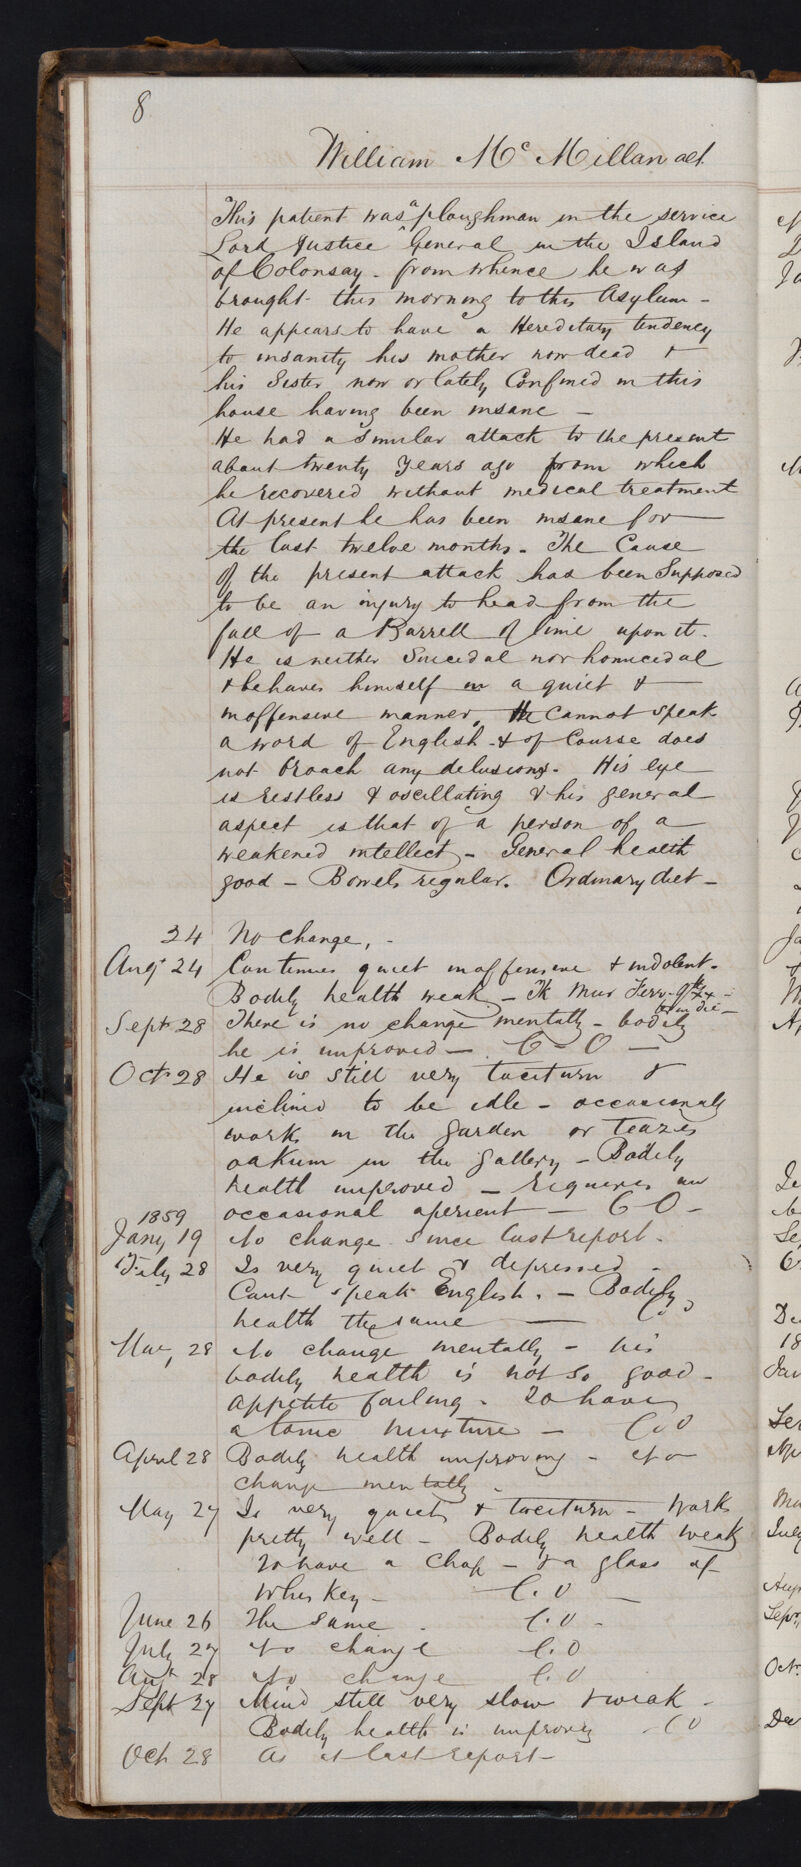 8
William Mc Millan aet.
This patient was a ploughman in the service
Lord Justice General in the Island
of Colonsay - from whence he was
brought this morning to this Asylum -
He appears to have a Hereditary tendency
to insanity his mother now dead &
his Sister now or lately Confined in this
house having been insane -
He had a similar attack to the present
about twenty years ago from which
he recovered without medical treatment
At present he has been insane for
the last twelve months - The Cause
of the present attack has been Supposed
to be an injury to head from the
fall of a Barrell of lime upon it.
He is neither Suicedal nor homicedal
& behaves himself in a quiet &
inoffensive manner, He cannot speak
a word of English - & of Course does
not broach any delusions - His eye
is restless & oscillating & his general
aspect is that of a person of a
weakened intellect - General health
good - Bowels regular. Ordinary diet -
24 No change, -
Augt 24 Continues quiet inoffensive & indolent -
Bodily health weak - Tr Mur Ferr.
ter in die -
Sept 28 There is no change mentally - bodily
he is improved - C - O -
Oct 28 He is still very taciturn &
inclined to be idle - occasionally
works in the garden or teazes
oakum in the gallery - Bodily
health improved - requires an
occasional aperient - C O -
1859
Jany 19 No change since last report -
Feby 28 Is very quiet & depressed -
Cant speak English. - Bodily
health the same - C. O
Mar, 28 No change mentally - his
bodily health is not so good -
appetite failing - To have
a tonic mixture - C. O
April 28 Bodily health improving - No
change mentally -
May 27 Is very quiet & taciturn - Works
pretty well - Bodily health weak
To have a Chop - & a glass of
Whiskey - C. O -
June 26 The same - C. O -
July 27 No change C. O
Augt 28 No change C. O
Sept 27 Mind still very slow & weak -
Bodily health is improving - C O
Oct 28 As at last report -